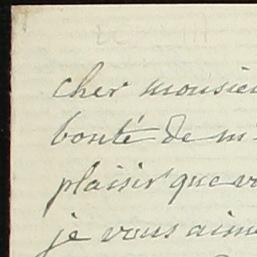 cher monsieu
bonté de m'
plaisir que vo
je vous aime